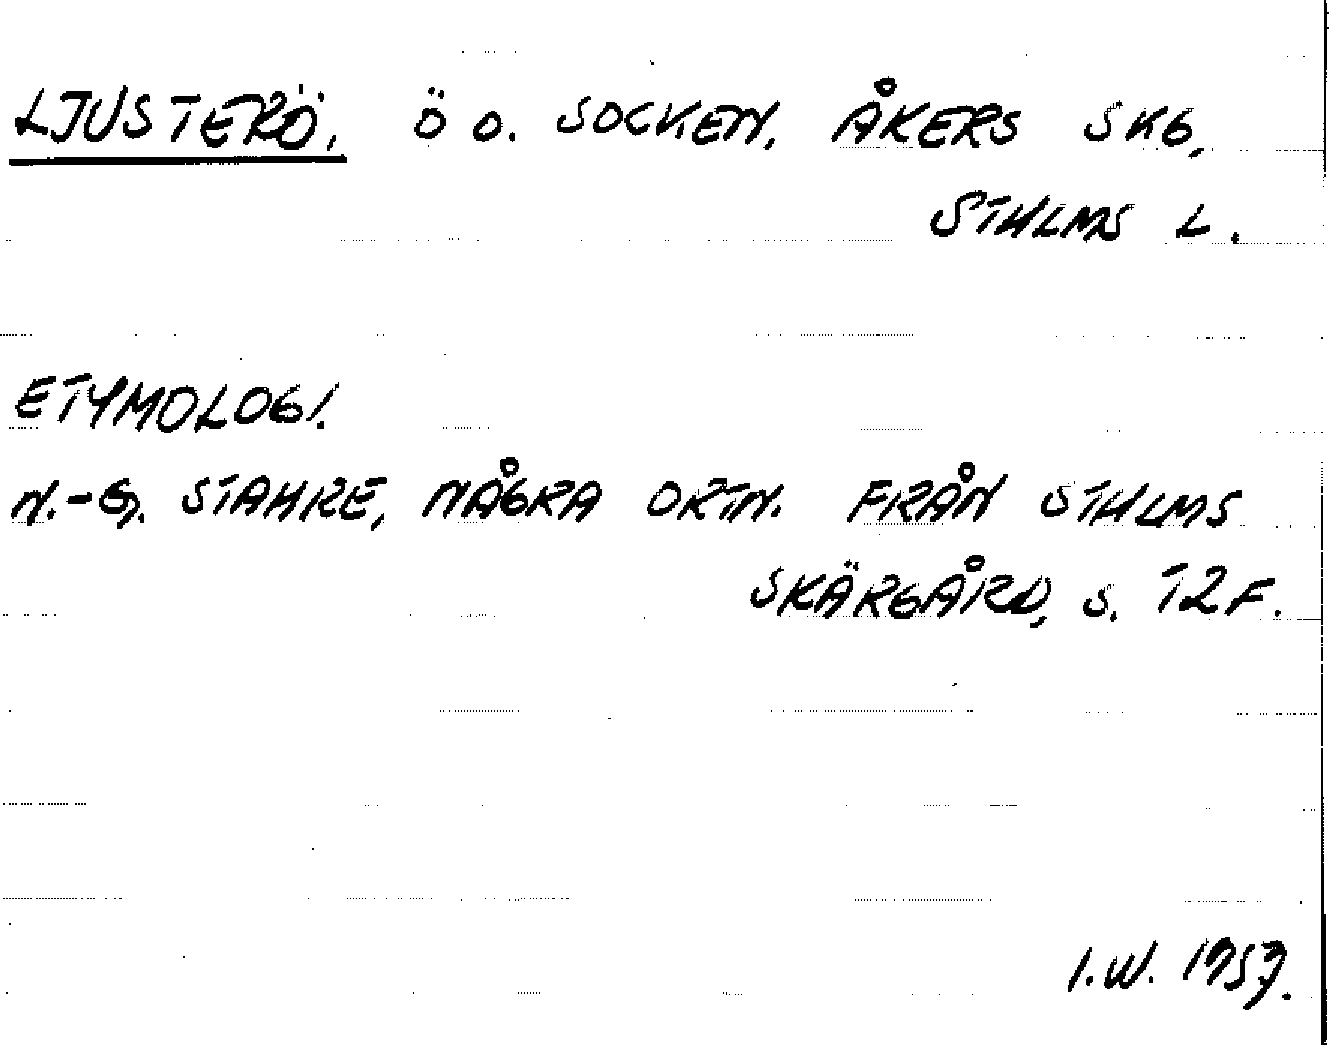 LJUSTERÖ, Ö O. SOCKEN, ÅKERS SKG,
STHLMS L.
ETYMOLOGI.
N.-G. STAHRE, NÅGRA ORTN. FRÅN STHLMS
SKÄRGÅRD, S. 12 F.
I.W. 1957.